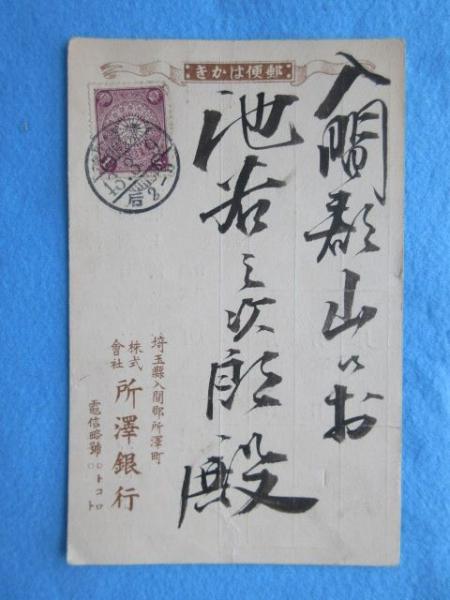 郵便はかき
入間郡山口村
池 次郎殿
埼玉縣入間郡所澤町
株式會社 所澤銀行
電信略號 ○トコロ ○ト